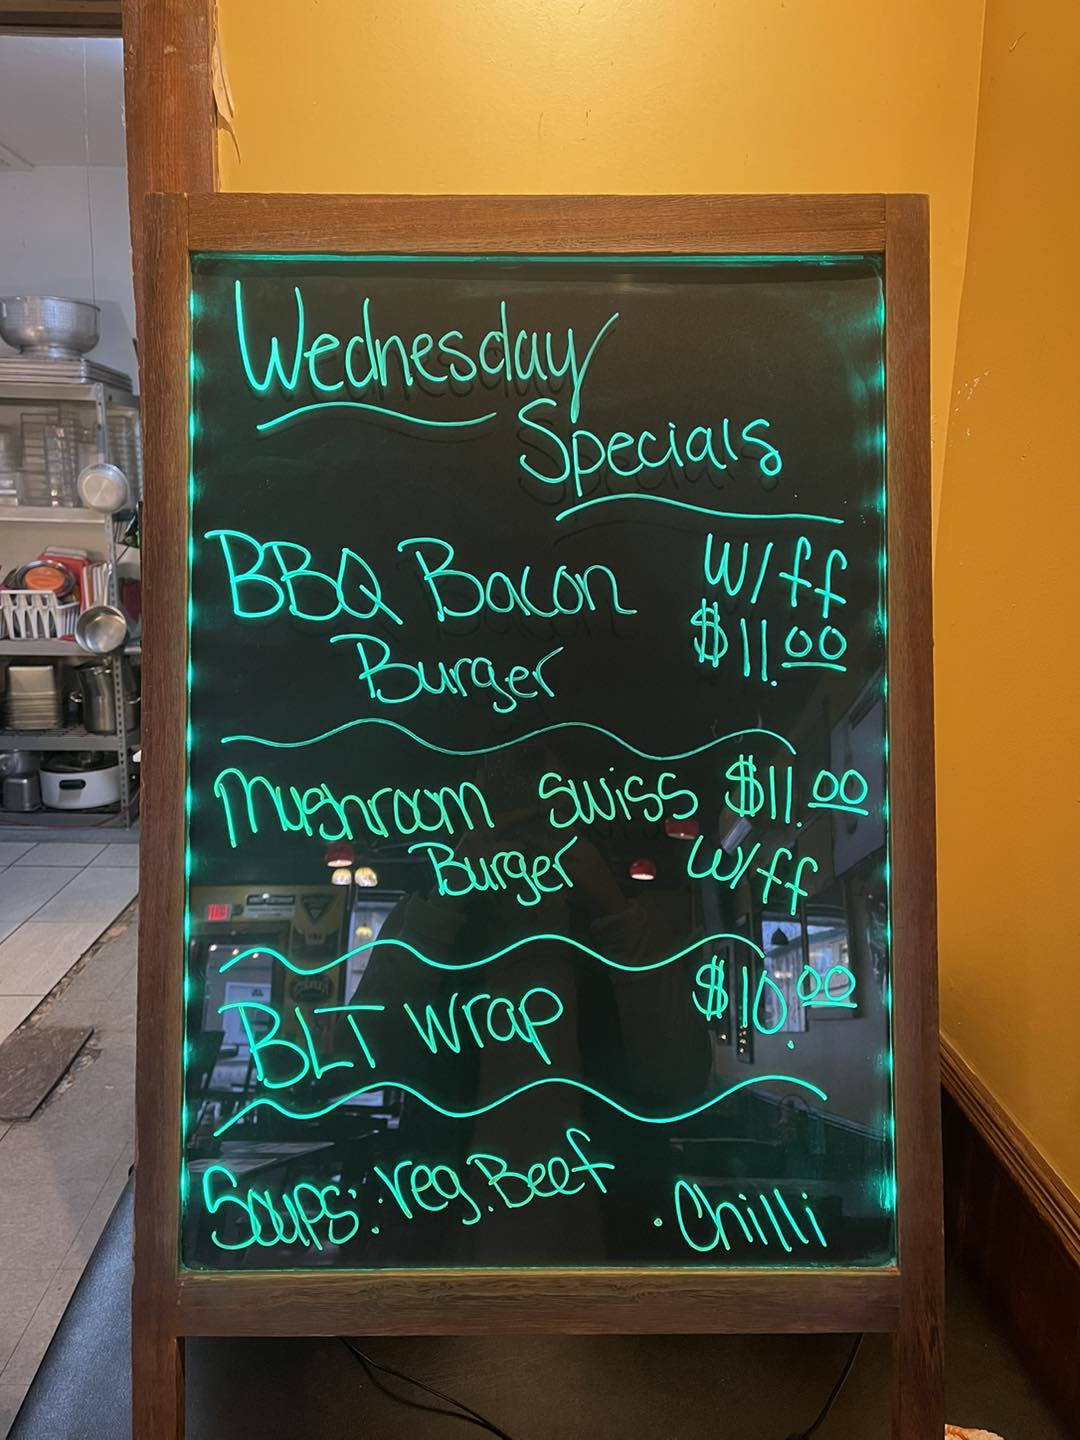 Wednesday
Specials
BBQ Bacon W/ff
Burger $11.00
Mushroom Swiss $11.00
Burger W/ff
BLT Wrap $10.00
Soups: · Veg. Beef · Chilli